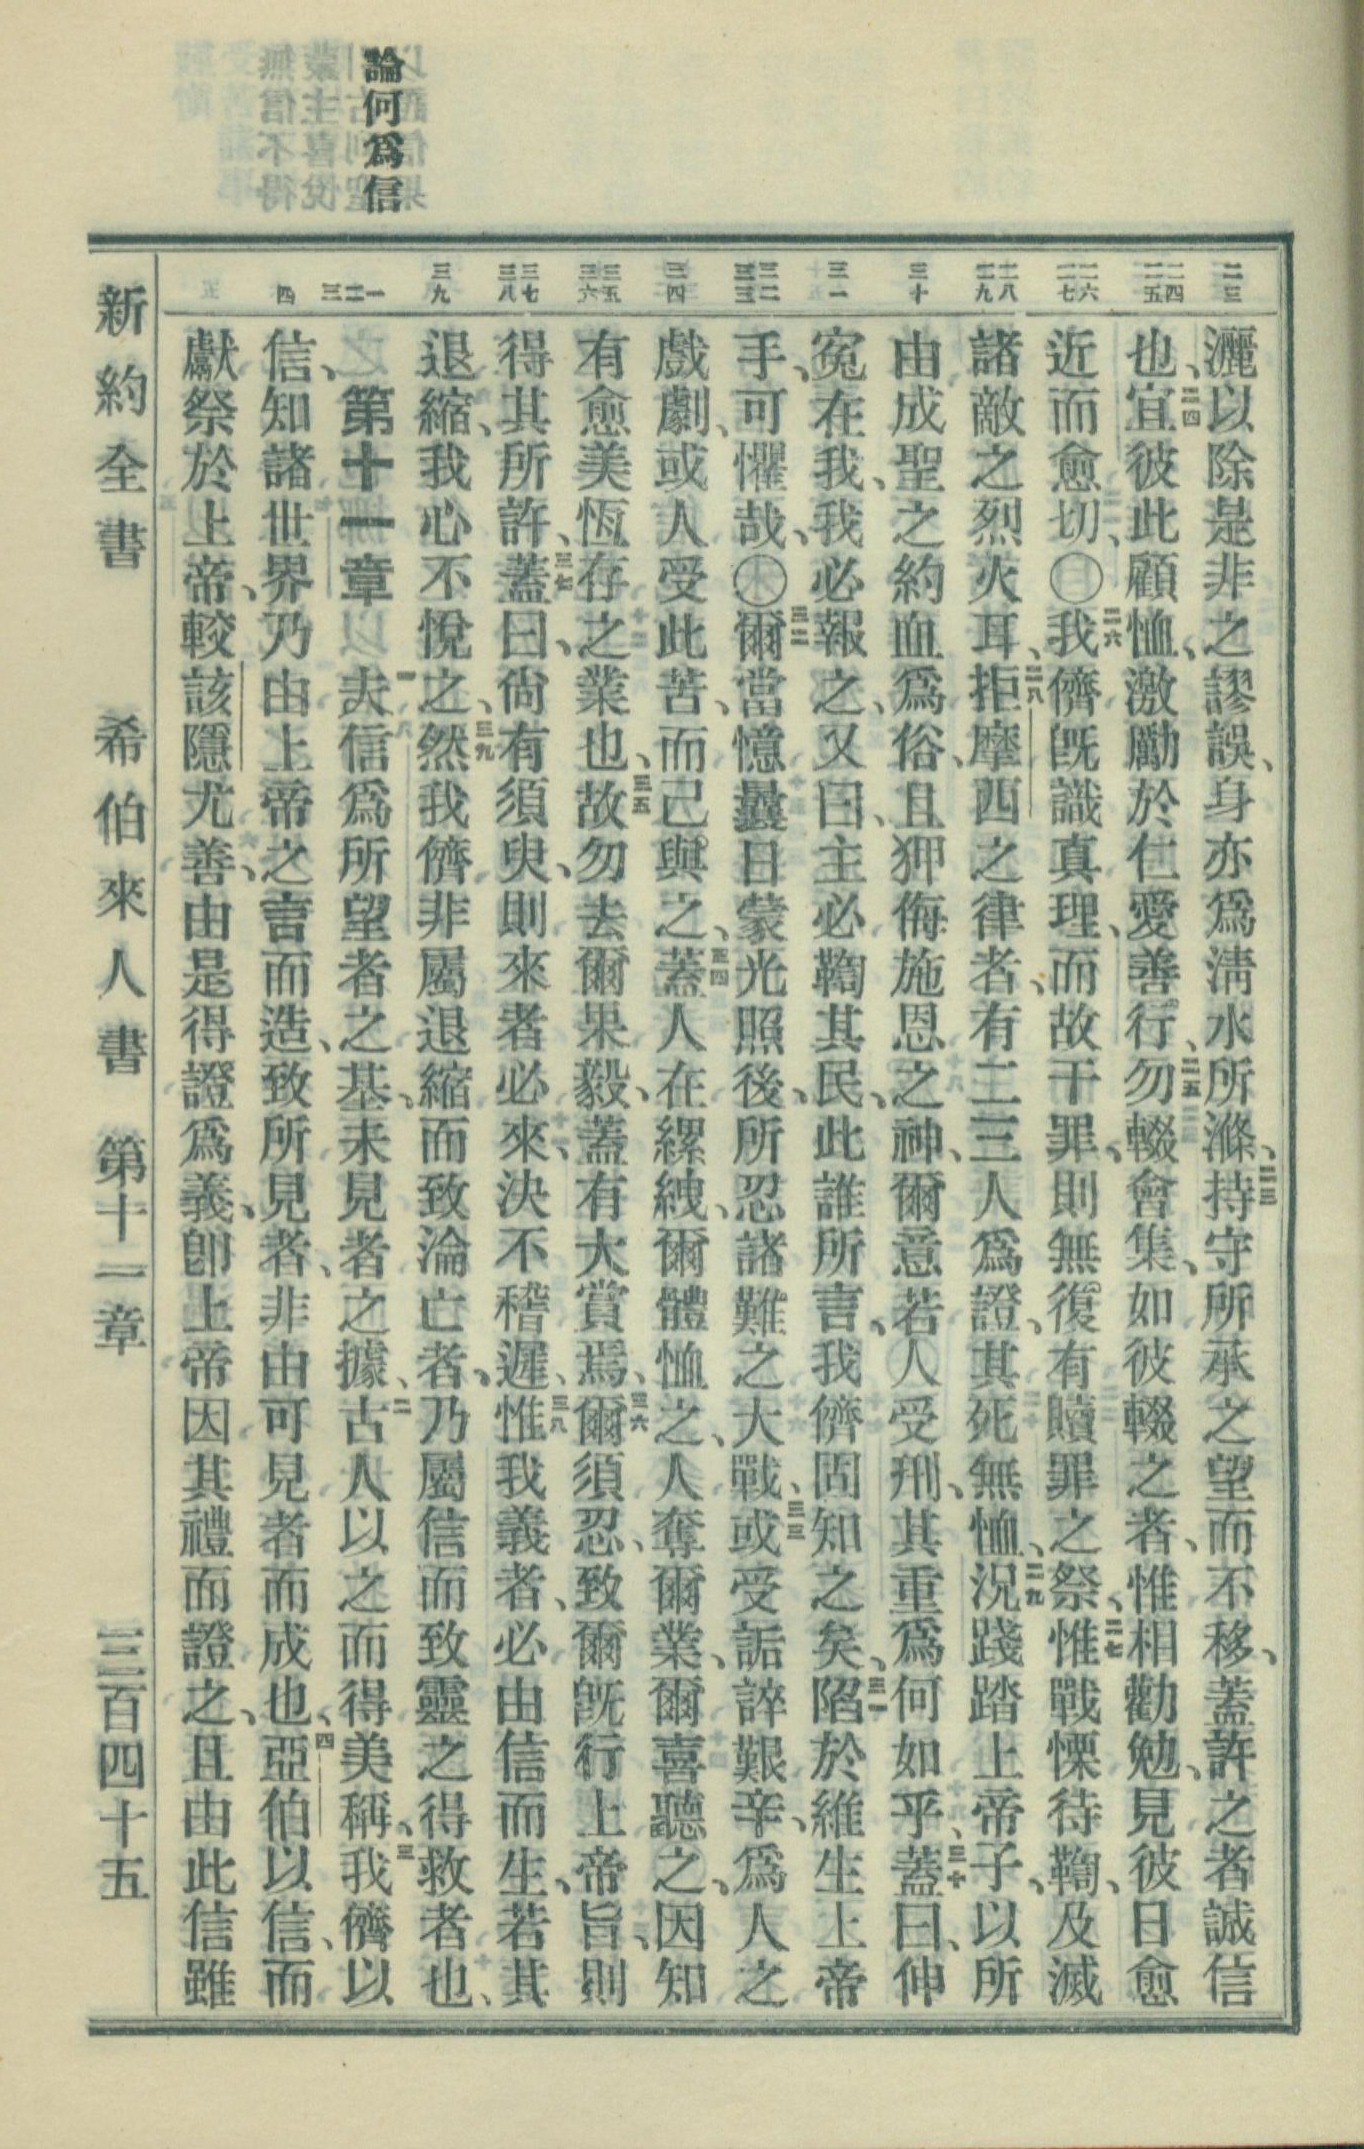 論何爲信
二三
二四 二五
二六 二七
二八 二九
三十
三一
三二 三三
三四
三五 三六
三七 三八
三九
一 二 三
四
灑以除是非之謬誤、身亦爲淸水所滌、二三持守所承之望而不移、蓋許之者誠信
也、二四宜彼此顧恤、激勵於仁愛善行、二五勿輟會集、如彼輟之者、惟相勸勉、見彼日愈
近而愈切、〇二六我儕旣識眞理、而故干罪、則無復有贖罪之祭、二七惟戰慄待鞫、及滅
諸敵之烈火耳、二八拒摩西之律者、有二三人爲證、其死無恤、二九況踐踏上帝子、以所
由成聖之約血爲俗、且狎侮施恩之神、爾意若人受刑、其重爲何如乎、三十蓋曰、伸
冤在我、我必報之、又曰、主必鞫其民、此誰所言、我儕固知之矣、三一陷於維生上帝
手、可懼哉、〇三二爾當憶曩日蒙光照後、所忍諸難之大戰、三三或受詬誶艱辛、爲人之
戲劇、或人受此苦、而己與之、三四蓋人在縲絏、爾體恤之、人奪爾業、爾喜聽之、因知
有愈美恆存之業也、三五故勿去爾果毅、蓋有大賞焉、三六爾須忍、致爾旣行上帝旨、則
得其所許、三七蓋曰、尙有須臾、則來者必來、決不稽遲、三八惟我義者、必由信而生、若其
退縮、我心不悅之、三九然我儕非屬退縮而致淪亡者、乃屬信而致靈之得救者也、
第十一章 一夫信爲所望者之基、未見者之據、二古人以之而得美稱、三我儕以
信、知諸世界乃由上帝之言而造、致所見者、非由可見者而成也、四亞伯以信、而
獻祭於上帝、較該隱尤善、由是得證爲義、卽上帝因其禮而證之、且由此信雖
新約全書 希伯來人書 第十一章 三百四十五